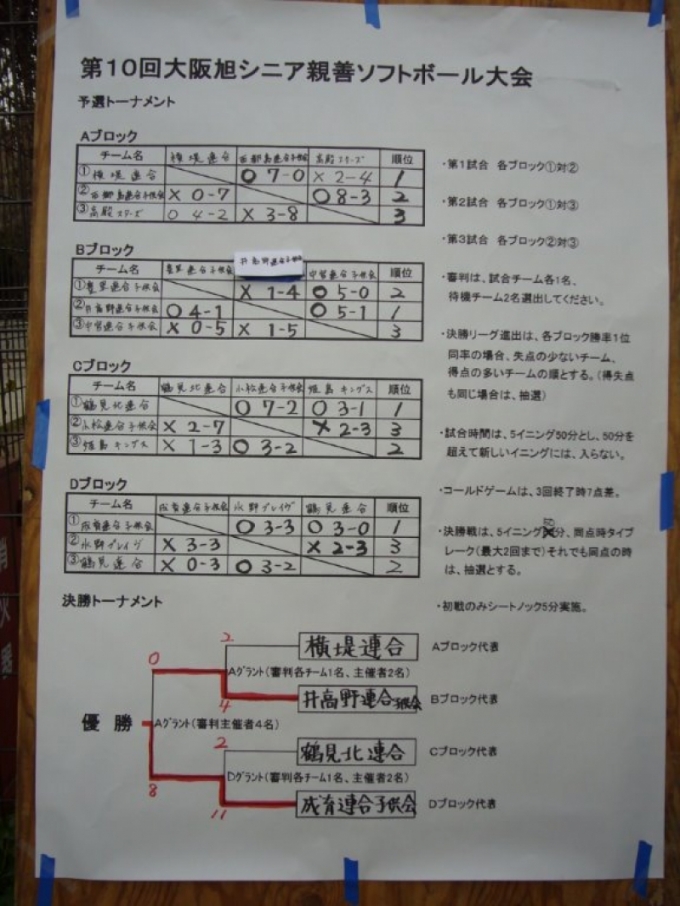 第10回大阪旭シニア親善ソフトボール大会
予選トーナメント
Aブロック
チーム名 横堤連合 高殿スターズ 順位
①横堤連合 O 7-0 X 2-4 1
② X 0-7 O 8-3 2
③高殿スターズ O 4-2 X 3-8 3
Bブロック
井高野連合子供会
チーム名 中宮連合子供会 順位
① X 1-4 O 5-0 2
②井高野連合子供会 O 4-1 O 5-1 1
③中宮連合子供会 X 0-5 X 1-5 3
Cブロック
チーム名 鶴見北連合 小松連合子供会 姫島キングス 順位
①鶴見北連合 O 7-2 O 3-1 1
②小松連合子供会 X 2-7 X 2-3 3
③姫島キングス X 1-3 O 3-2 2
Dブロック
チーム名 成育連合子供会 水野ブレイヴ 鶴見連合 順位
①成育連合子供会 O 3-3 O 3-0 1
②水野ブレイヴ X 3-3 X 2-3 3
③鶴見連合 X 0-3 O 3-2 2
・第1試合 各ブロック①対②
・第2試合 各ブロック①対③
・第3試合 各ブロック②対③
・審判は、試合チーム各1名、
待機チーム2名選出してください。
・決勝リーグ進出は、各ブロック勝率1位
同率の場合、失点の少ないチーム、
得点の多いチームの順とする。(得失点
も同じ場合は、抽選)
・試合時間は、5イニング50分とし、50分を
超えて新しいイニングには、入らない。
・コールドゲームは、3回終了時7点差。
・決勝戦は、5イニング分、同点時タイブ
レーク(最大2回まで)それでも同点の時
は、抽選とする。
・初戦のみシートノック5分実施。
決勝トーナメント
2 横堤連合 Aブロック代表
0 Aグラント(審判各チーム1名、主催者2名)
4 井高野連合子供会 Bブロック代表
優勝 Aグラント(審判主催者4名)
2 鶴見北連合 Cブロック代表
Dグラント(審判各チーム1名、主催者2名)
8 11 成育連合子供会 Dブロック代表